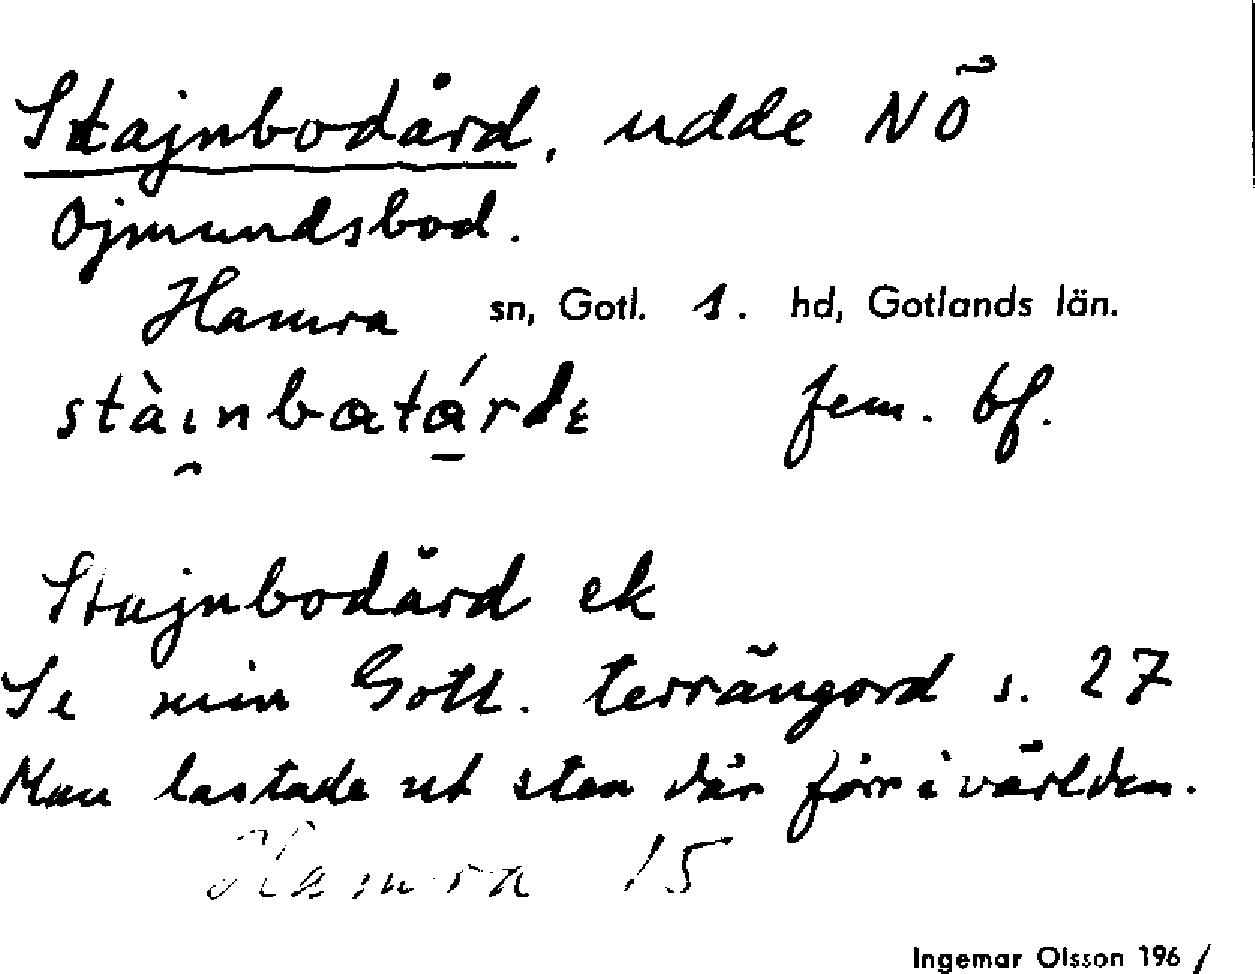 Stajnbodård, udde NÖ
Ojmundsbod.
Hamra sn, Gotl. S. hd, Gotlands län.
stàinbatárdε fem. bf.
Stajnbodård ek
Se min Gotl. terrängord s. 27
Man lastade ut sten där förr i världen.
Hamra 15
Ingemar Olsson 196 /